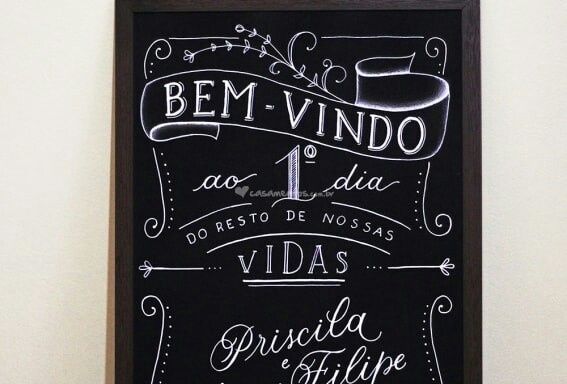 BEM-VINDO
ao 1º dia
casamentos.com.br
DO RESTO DE NOSSAS
VIDAS
Priscila
e
Filipe